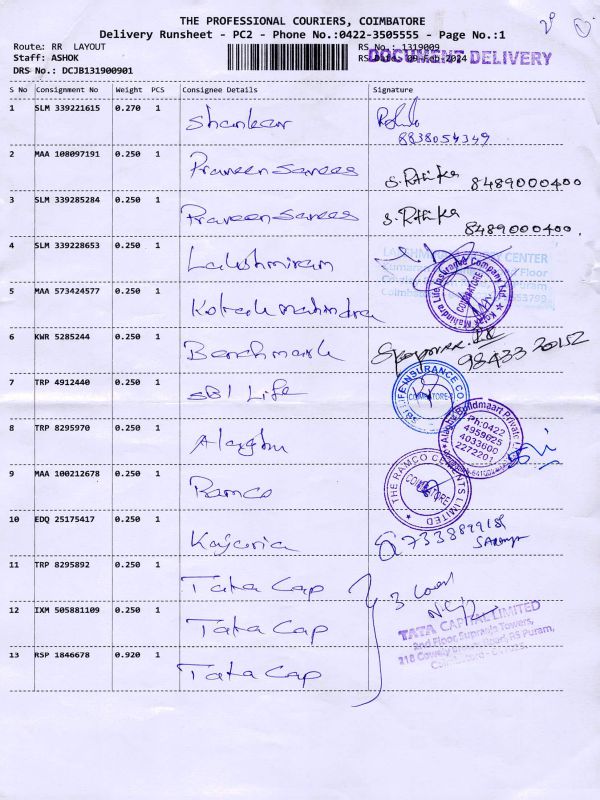 THE PROFESSIONAL COURIERS, COIMBATORE
Delivery Runsheet - PC2 - Phone No.:0422-3505555 - Page No.:1
Route: RR LAYOUT
RS No.: 1319009
Staff: ASHOK
RS Date: 09-Feb-2024
DOCUMENT DELIVERY
DRS No.: DCJB131900901
S No Consignment No Weight PCS Consignee Details Signature
1 SLM 339221615 0.270 1 Shankar
8838054349
2 MAA 108097191 0.250 1 Praveen Sarees S. Rathika 8489000400
3 SLM 339285284 0.250 1 Praveen Sarees S. Rathika 8489000400.
4 SLM 339228653 0.250 1 Lakshmiram
CENTER
Floor
Puram,
Kotak Mahindra Life Insurance Company Ltd.
COIMBATORE
5 MAA 573424577 0.250 1 Kotak Mahindra
6 KWR 5285244 0.250 1 Benchmark
98433 20152
7 TRP 4912440 0.250 1 SBI Life
SBI LIFE INSURANCE CO
COIMBATORE
8 TRP 8295970 0.250 1 Alaghu
Alaghu Buildmaart Private
Ph:0422
4959025
4033600
2272201
9 MAA 100212678 0.250 1 Ramco
THE RAMCO CEMENTS LIMITED
COIMBATORE
10 EDQ 25175417 0.250 1 Kajaria
11 TRP 8295892 0.250 1 Tata Cap
3 Cover
12 IXM 505881109 0.250 1 Tata Cap
TATA CAPITAL LIMITED
2nd Floor, Supriya Towers,
218 RS Puram,
Coimbatore
13 RSP 1846678 0.920 1 Tata Cap